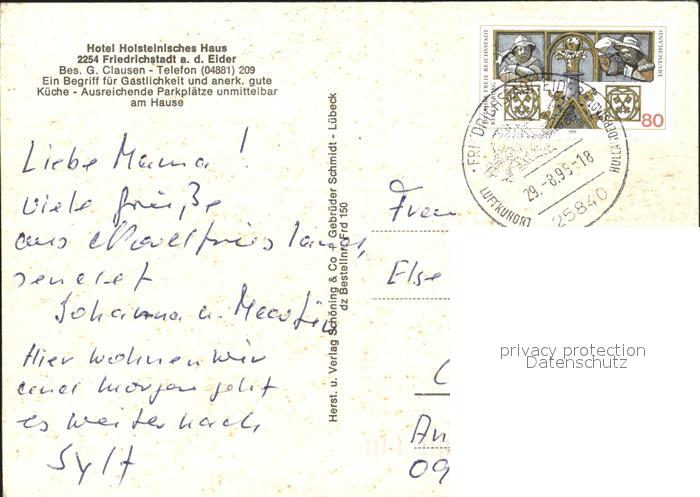 Hotel Holsteinisches Haus
2254 Friedrichstadt a. d. Eider
Bes. G. Clausen - Telefon (04881) 209
Ein Begriff für Gastlichkeit und anerk. gute
Küche - Ausreichende Parkplätze unmittelbar
am Hause
Liebe Mama!
viele Grüße
aus Nordfriesland,
sendet
Johanna u. Martin
Hier wohnen wir
und morgen geht
es weiter nach
Sylt
Herst. u. Verlag Schöning & Co + Gebrüder Schmidt - Lübeck
dz Bestellnr. Frd 150
750 JAHRE FREIE REICHSSTADT
REGENSBURG
DEUTSCHLAND
80
1995
29.-8.95-18
LUFTKURORT
25840
Frau
Else
An
09
privacy protection
Datenschutz